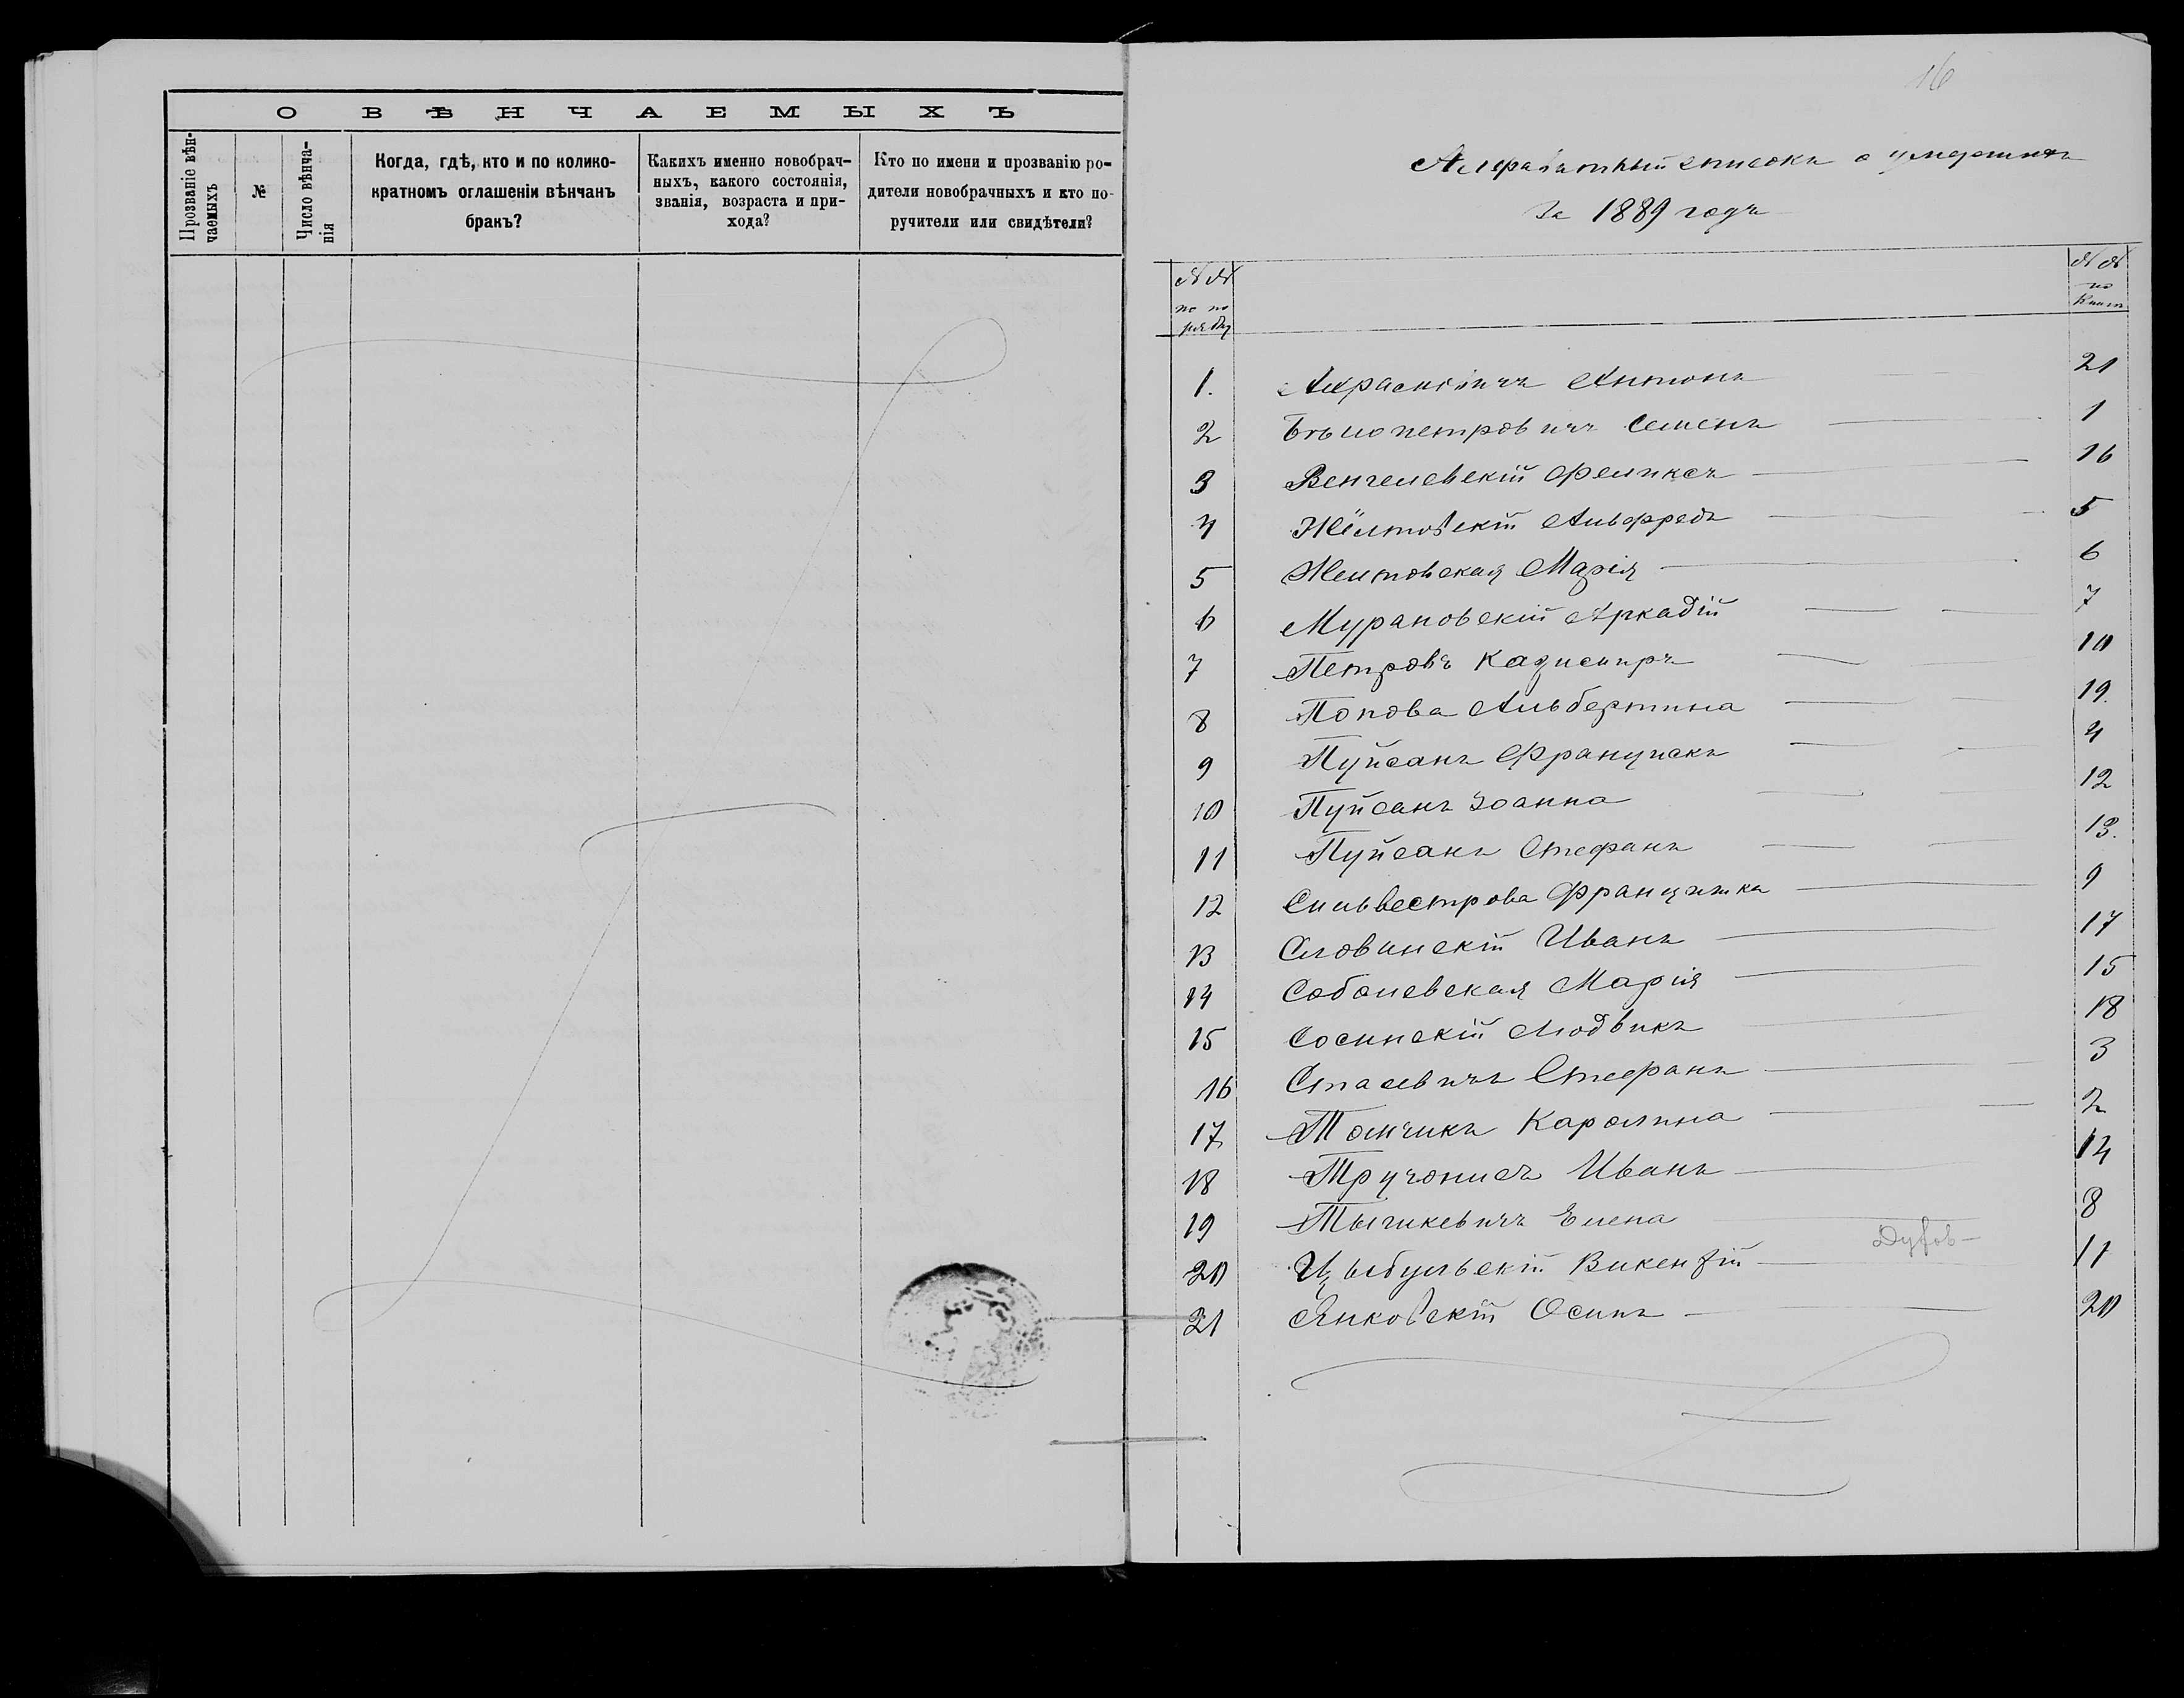 О ВѢНЧАЕМЫХЪ
Прозваніе вѣн-
чаемыхъ
№
Число вѣнча-
нія
Когда, гдѣ, кто и по колико-
кратномъ оглашеніи вѣнчанъ
бракъ?
Какихъ именно новобрач-
ныхъ, какого состоянія,
званія, возраста и при-
хода?
Кто по имени и прозванію ро-
дители новобрачныхъ и кто по-
ручители или свидѣтели?
16
Алфавитный списокъ о умершихъ
за 1889 годъ
№№
по по
рядку
№№
по
книгѣ
1. Антонъ 21
2 Бѣлопетровичъ Семенъ 1
3 Венгелевскій Феликсъ 16
4 Жёлтовскій Альфредъ 5
5 Желтовская Марія 6
6 Мурановскій Аркадій 7
7 Петровъ Казиміръ 10
8 Попова Альбертина 19.
9 Пуйсанъ Францискъ 4
10 Пуйсанъ Іоанна 12
11 Пуйсанъ Стефанъ 13.
12 Сильвестрова Францишка 9
13 Словинскій Иванъ 17
14 Соболевская Марія 15
15 Сосинскій Людвикъ 18
16 Стасевичъ Стефанъ 3
17 Томчикъ Каролина 2
18 Иванъ 14
19 Тышкевичъ Елена 8
20 Цыбульскій Викентій 11
21 Янковскій Осипъ 20